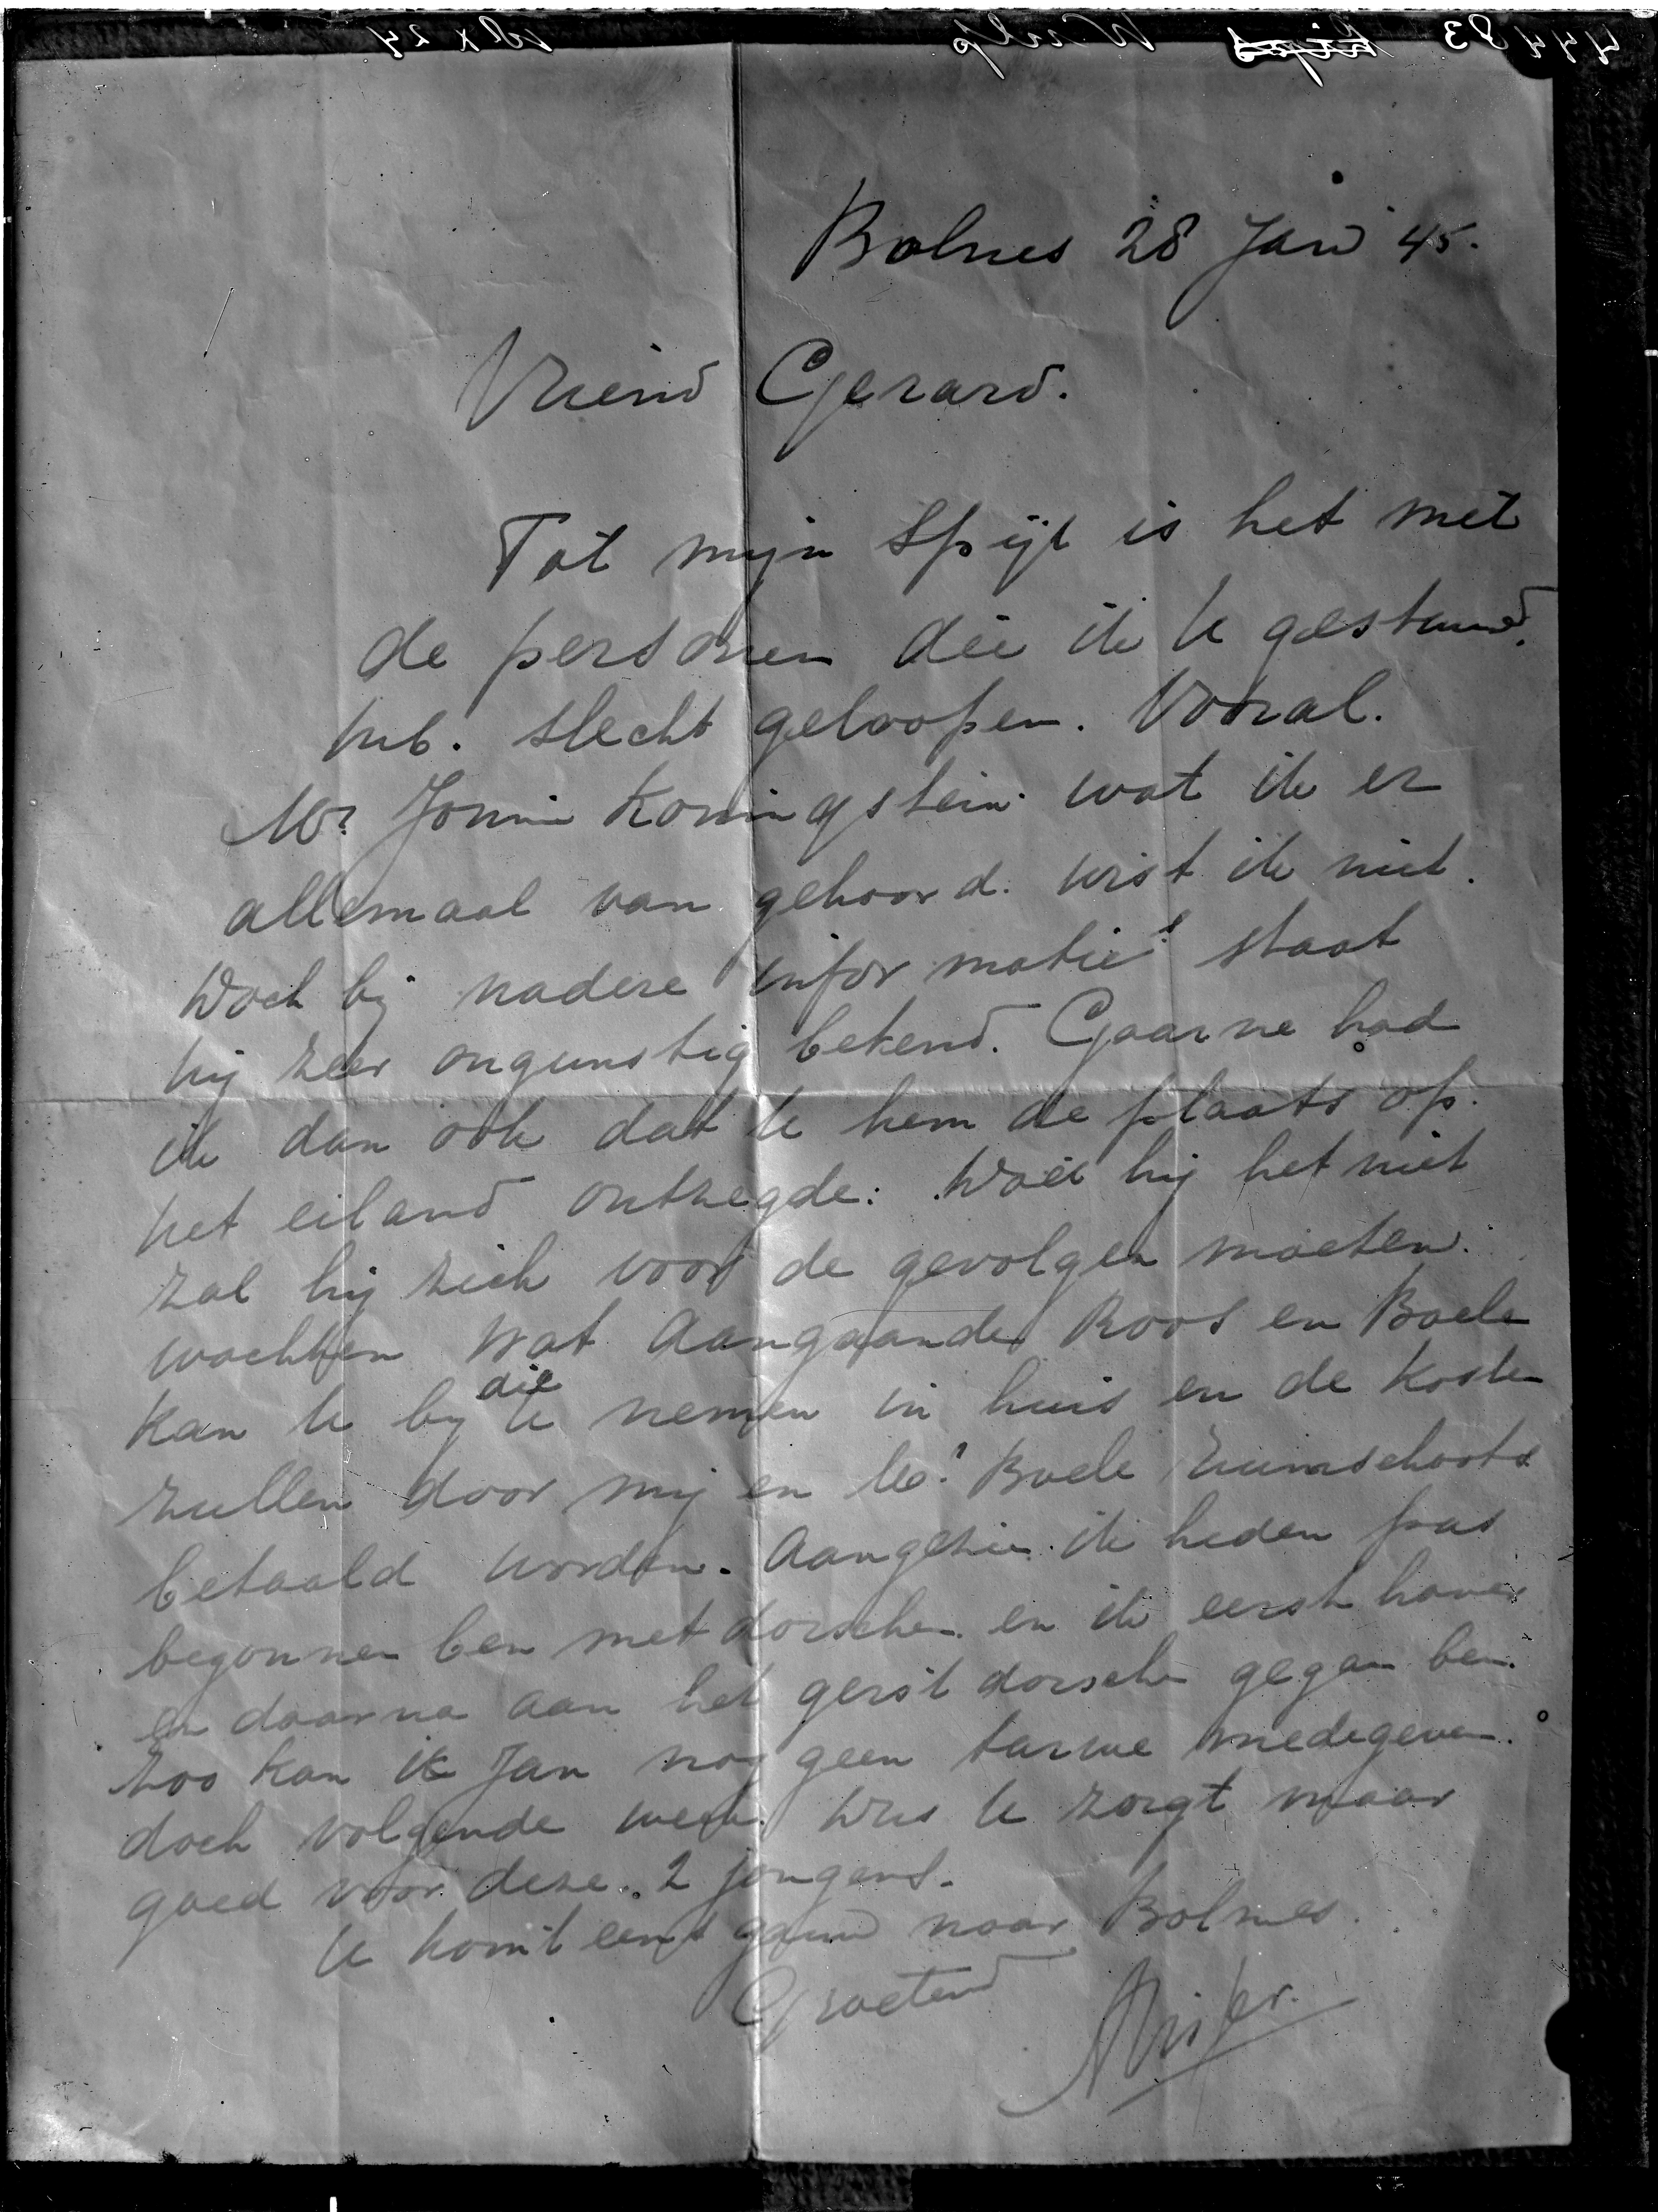 Bolnes 28 Jan 45.
Vriend Gerard.
Tot mijn Spijt is het met
de personen die ik U gestuurd.
heb. slecht geloopen. Vooral.
Koningstein wat ik er
allemaal van gehoord. wist ik niet.
Doch bij nadere informatie's staat
hij zeer ongunstig bekend. Gaarne had
ik dan ook dat U hem de plaats op.
het eiland ontzegde: Doet hij het niet
zal hij zich voor de gevolgen moeten.
wachten Wat Aangaande Roos en Boele
Kan U bij U die nemen in huis en de Kosten
zullen door mij en Boele ruimschoots
betaald worden. Aangezien ik heden pas
begonnen ben met dorschen en ik eerst haver
en daarna aan het gerst dorschen gegaan ben.
Zoo kan ik Jan nog geen tarwe medegeven.
doch volgende week. Dus U zorgt maar
goed voor deze. 2 jongens.
U komt eens gauw naar Bolnes.
Groetend